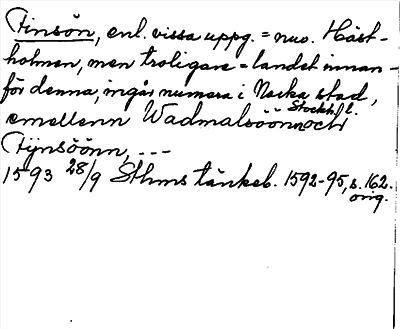 Finsön, enl. vissa uppg. = nuv. Häst-
holmen, men troligare = landet innan-
för denna, ingår numera i Nacka stad,
Stockh. l.
emellenn Wadmalsöönn och
Fijnsöönn, ---
1593 28/9 Sthms tänkeb. 1592-95, s. 162.
orig.